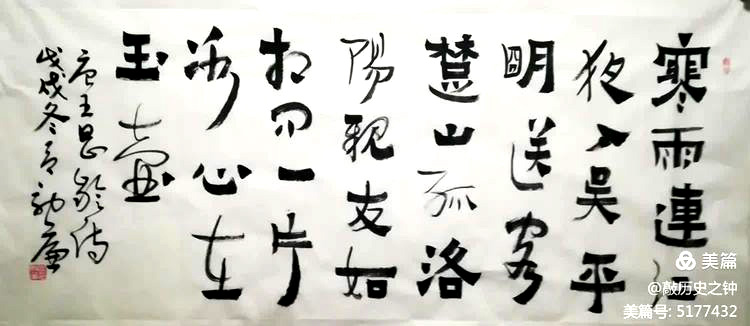 寒雨連江
夜入吴平
明送客
楚山孤洛
陽親友如
相问一片
冰心在
玉壶
唐王昌龄诗
戊戌冬月
美篇
@敲历史之钟
美篇号: 5177432